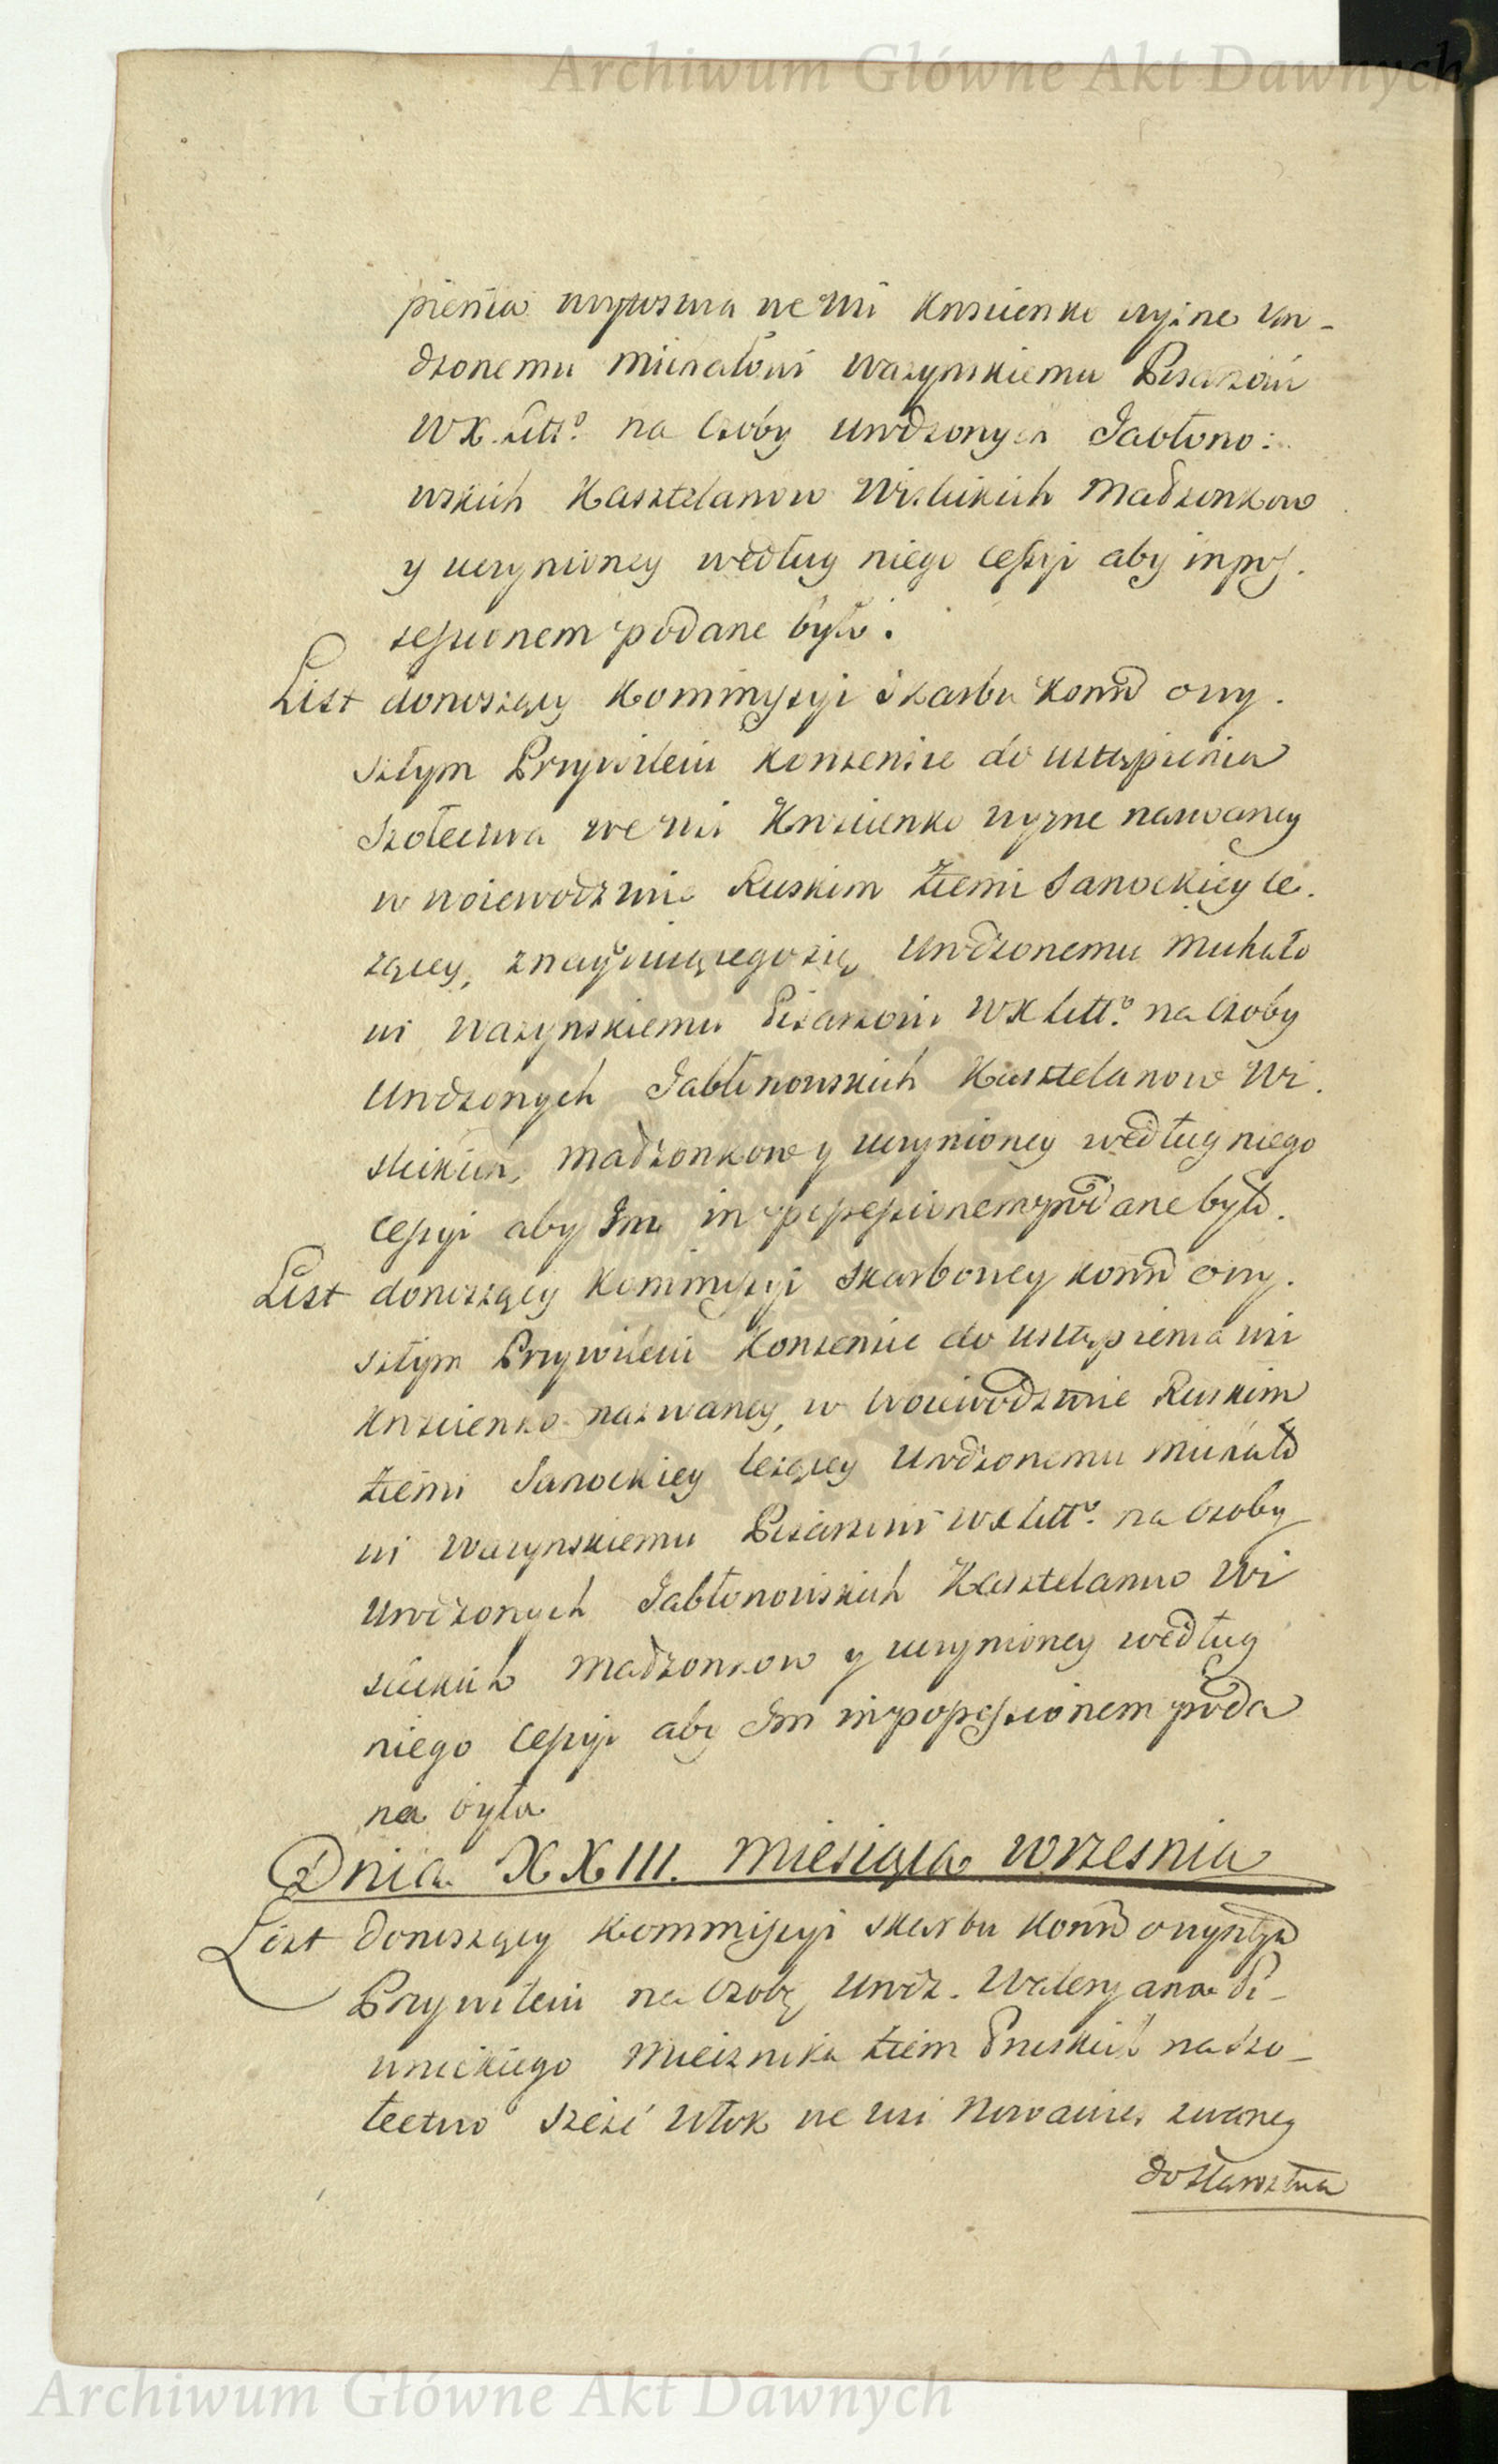 Archiwum Główne Akt Dawnych
pienia woytostwa we wsi Krościenko wyzne Uro-
dzonemu Michałowi Wazynskiemu Pisarzowi
WX. Litt.o na Osoby Urodzonych Jabłono:
wskich Kasztelanow Wislickich Madzonkow
y uczynioney według niego cessyi aby in pos.
sessionem podane było.
List donoszący Kommissyi Skarbu Konn o wy.
szłym Przywileiu Konsensie do ustąpienia
Szołectwa we wsi Krościenko wyzne nazwaney
w Woiewodztwie Ruskim Ziemi Sanockiey le.
zącey, znayduiącego się Urodzonemu Michało
wi Wazynskiemu Pisarzowi WX Litt.o na Osoby
Urodzonych Jabłonowskich Kasztelanow Wi.
slickich, Madzonkow y uczynioney według niego
cessyi aby Im in possessionem podane było.
List donoszący Kommissyi Skarbowey Konn o wy.
szłym Przywileiu Konsensie do ustąpienia wsi
Krościenko nazwaney, w Woiewodztwie Ruskim
Ziemi Sanockiey lezącey Urodzonemu Michało
wi Wazynskiemu Pisarzowi WX Litt.o na Osoby
Urodzonych Jabłonowskich Kasztelanow Wi
slickich Madzonkow y uczynioney według
niego Cessyi aby Im in possessionem poda
na była
Dnia XXIII. Miesiąca Wrzesnia
List donoszący Kommissyi Skarbu Konn o wyszłym
Przywileiu na Osobę Urodz. Waleryana Pi-
wnickiego Miecznika Ziem Pruskich na Szo-
łectwo Sześć Włok we wsi zwaney
do Starostwa
Archiwum Główne Akt Dawnych